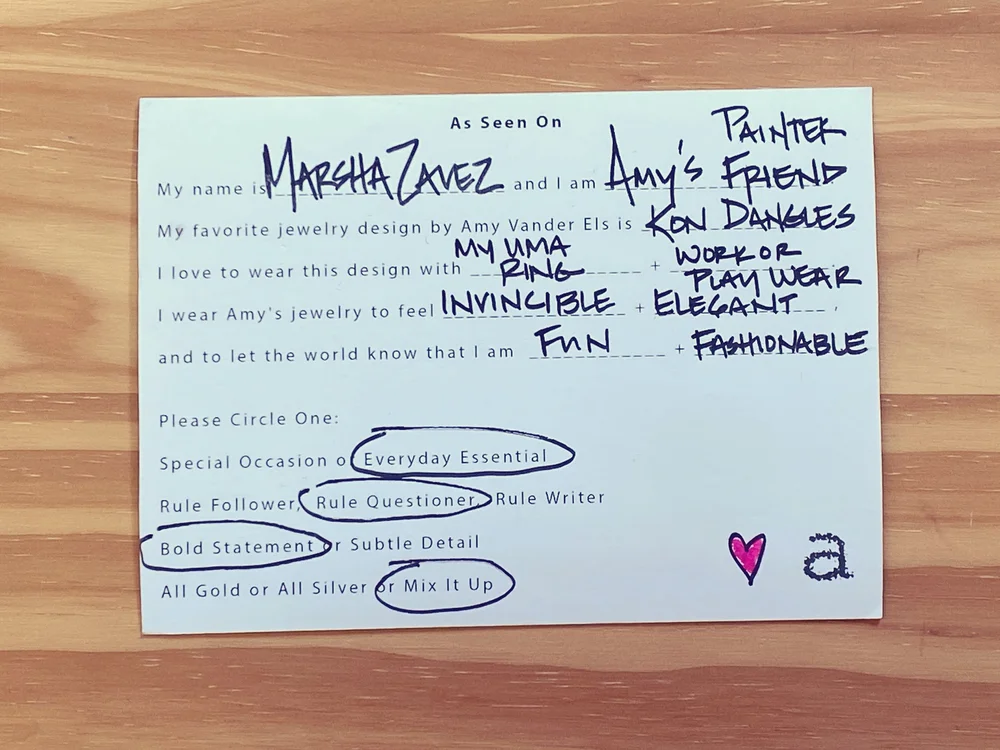 As Seen On
My name is MARSHA ZAVEZ and I am AMY'S PAINTER FRIEND
My favorite jewelry design by Amy Vander Els is KON DANGLES
I love to wear this design with MY UMA RING + WORK OR PLAY WEAR
I wear Amy's jewelry to feel INVINCIBLE + ELEGANT ,
and to let the world know that I am FUN + FASHIONABLE
Please Circle One:
Special Occasion or Everyday Essential
Rule Follower, Rule Questioner, Rule Writer
Bold Statement or Subtle Detail
All Gold or All Silver or Mix It Up
a